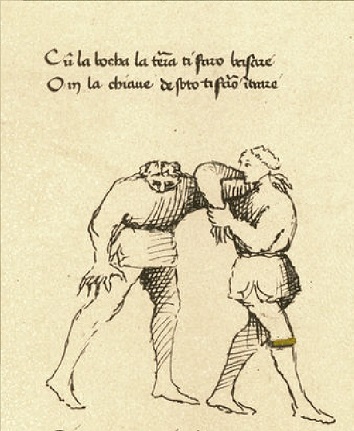 Cũ la bocha la terã ti faro basare
O in la chiaue de soto ti farõ intrare